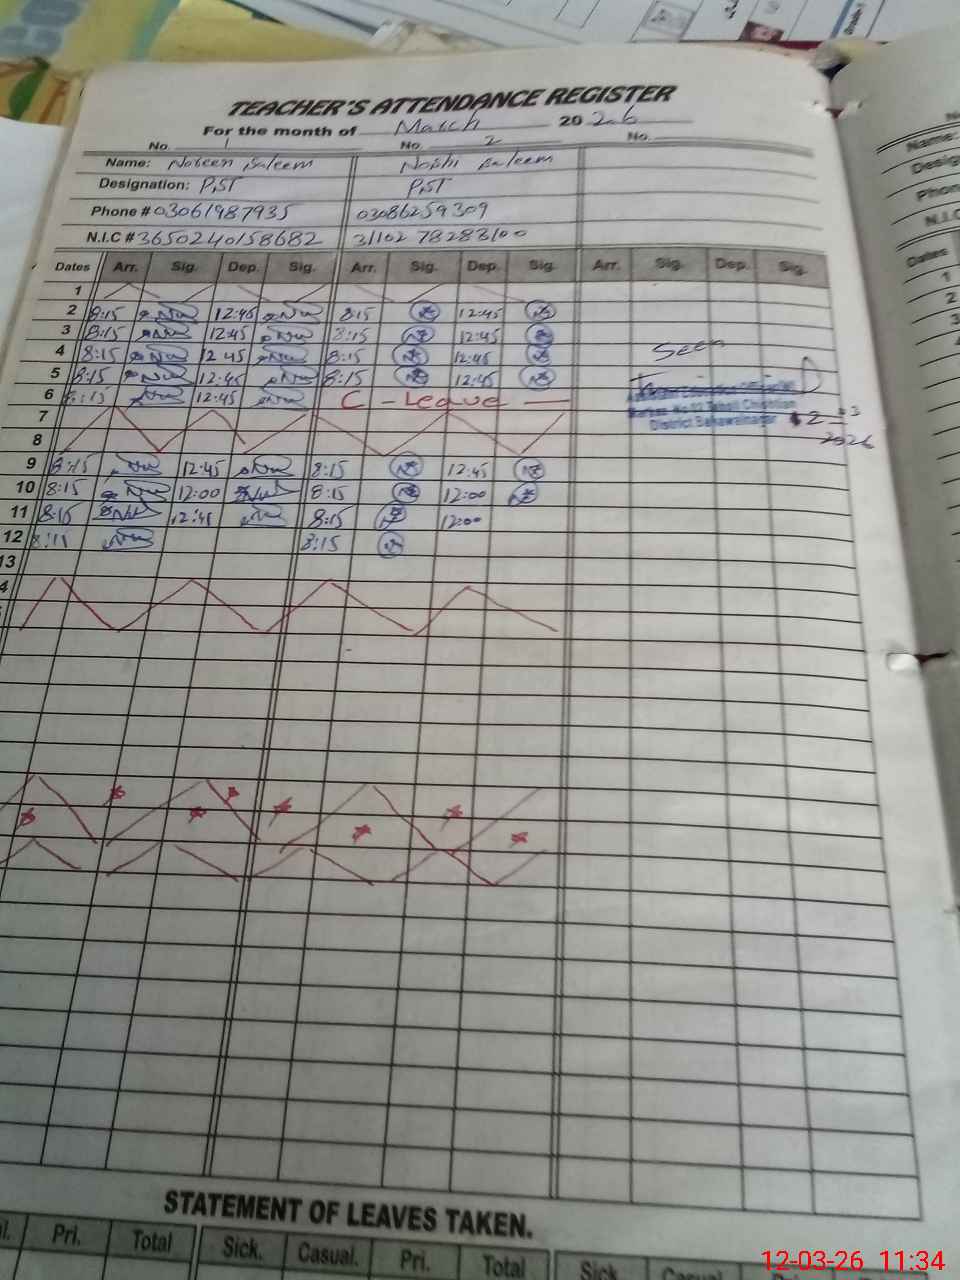 TEACHER'S ATTENDANCE REGISTER
For the month of March 2026
No. 1 No. 2 No.
Name: Noreen Saleem Noshi Saleem
Designation: P.ST P.ST
Phone # 03061987935 03086259309
N.I.C # 3650240158682 31102 78283100
Dates Arr. Sig. Dep. Sig. Arr. Sig. Dep. Sig. Arr. Sig. Dep. Sig.
1
2 8:15 12:45 8:15 12:45
3 8:15 12:45 8:15 12:45
4 8:15 12 45 8:15 12:45 Seen
5 8:15 12:45 8:15 12:45
6 8:15 12:45 C - Leave -
District Bahawalnagar
2026
7
8
9 8:15 12:45 8:15 12:45
10 8:15 12:00 8:15 12:00
11 8:15 8:15 12:00
12 8:11 8:15
13
STATEMENT OF LEAVES TAKEN.
Pri. Total Sick. Casual. Pri. Total Sick Casual
12-03-26 11:34
Name:
Phon
N.I.C
Dates
1
2
3